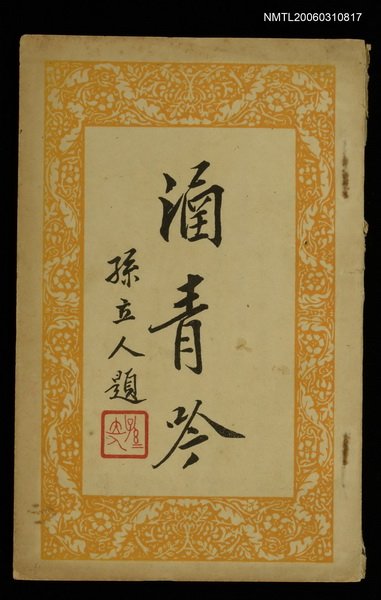 NMTL20060310817
涵青吟
孫立人題